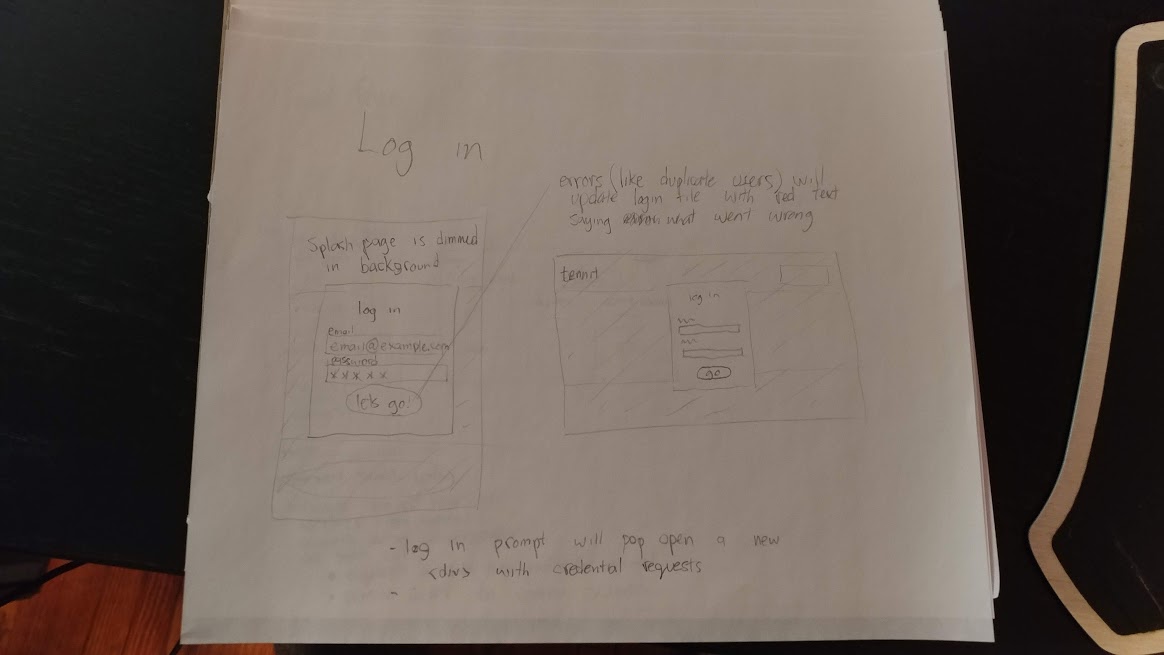 Log in
errors (like duplicate users) will
update login tile with red text
saying what went wrong
Splash page is dimmed
in background
log in
email
email@example.com
password
xxxxx
let's go!
tennit
log in
go
- log in prompt will pop open a new
<div> with credential requests
-